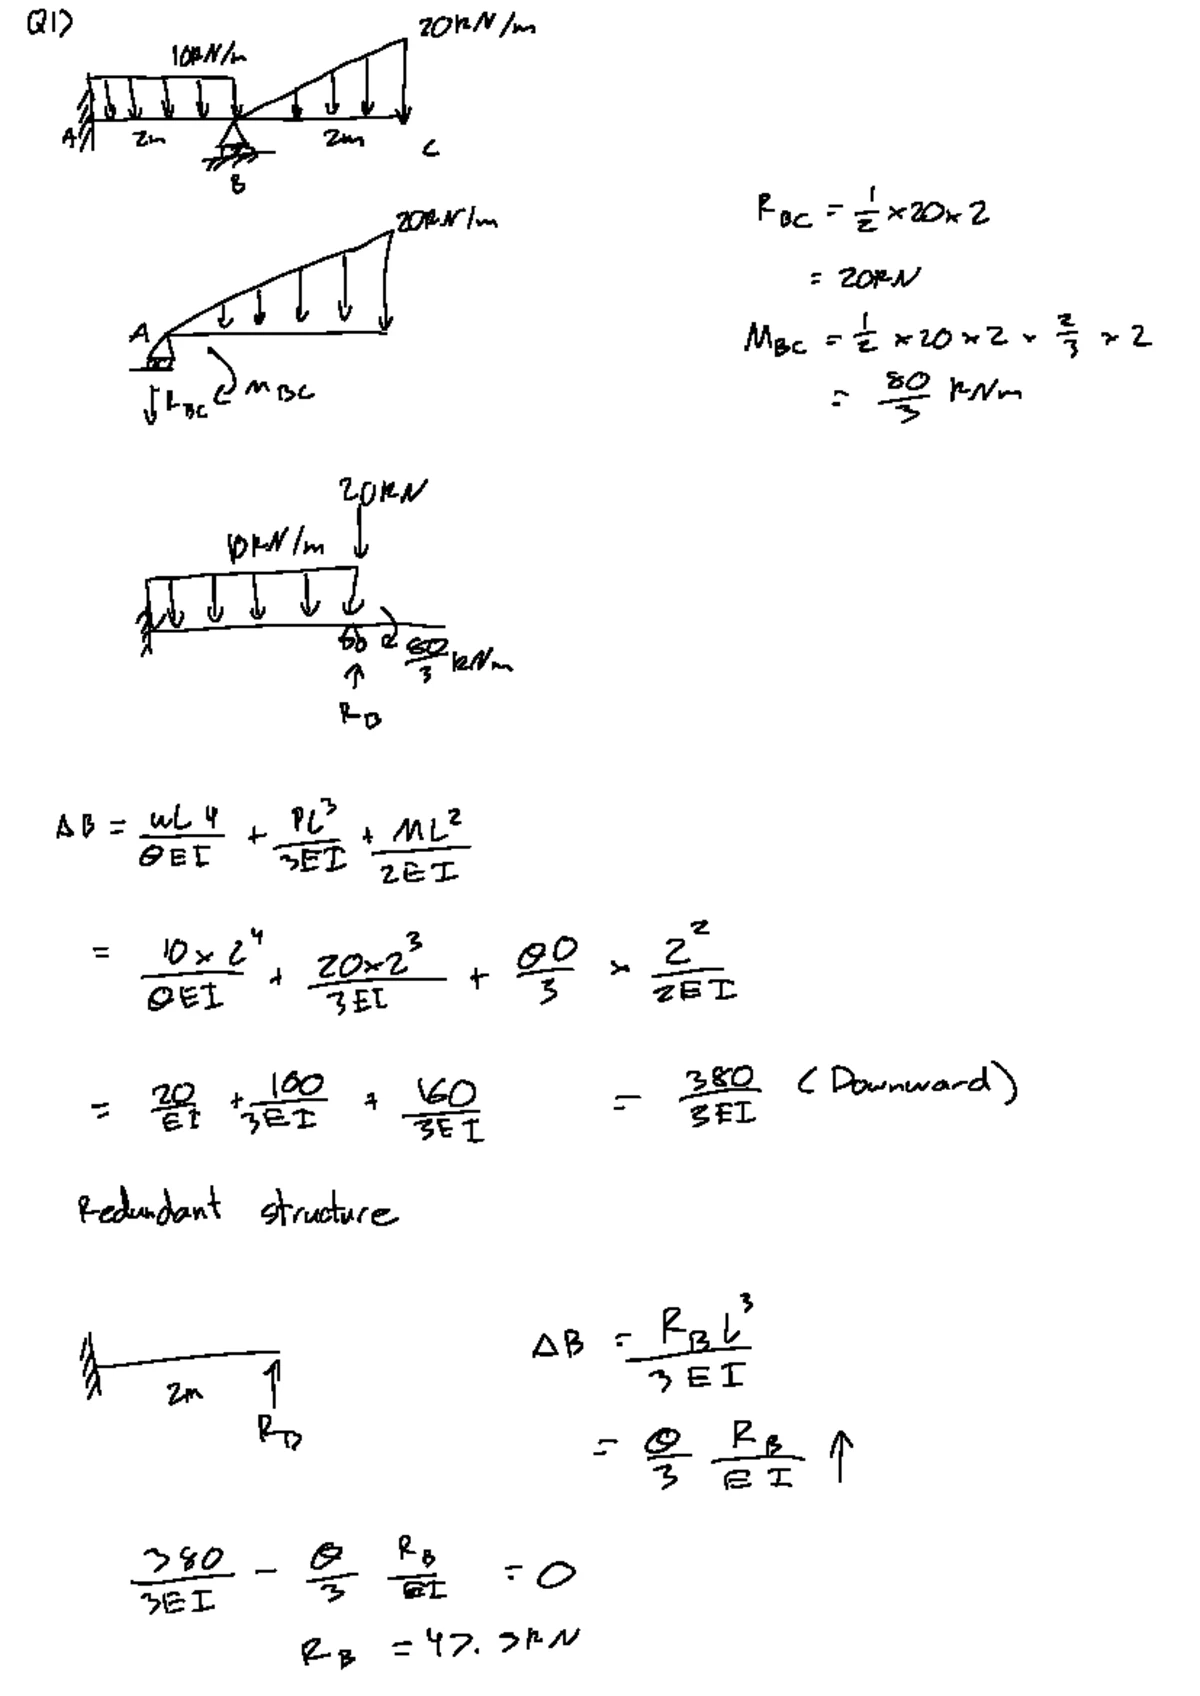 Q1)
20kN/m
10kN/m
A 2m 2m C
B
20kN/m
A
R_BC M_BC
R_BC = 1/2 × 20 × 2
= 20kN
M_BC = 1/2 × 20 × 2 × 2/3 × 2
= 80/3 kNm
20kN
10kN/m
80/3 kNm
R_B
ΔB = wL^4/8EI + PL^3/3EI + ML^2/2EI
= 10×2^4/8EI + 20×2^3/3EI + 80/3 × 2^2/2EI
= 20/EI + 160/3EI + 160/3EI = 380/3EI (Downward)
Redundant structure
2m
R_B
ΔB = R_B L^3/3EI
= 8/3 R_B/EI ↑
380/3EI - 8/3 R_B/EI = 0
R_B = 47.5kN